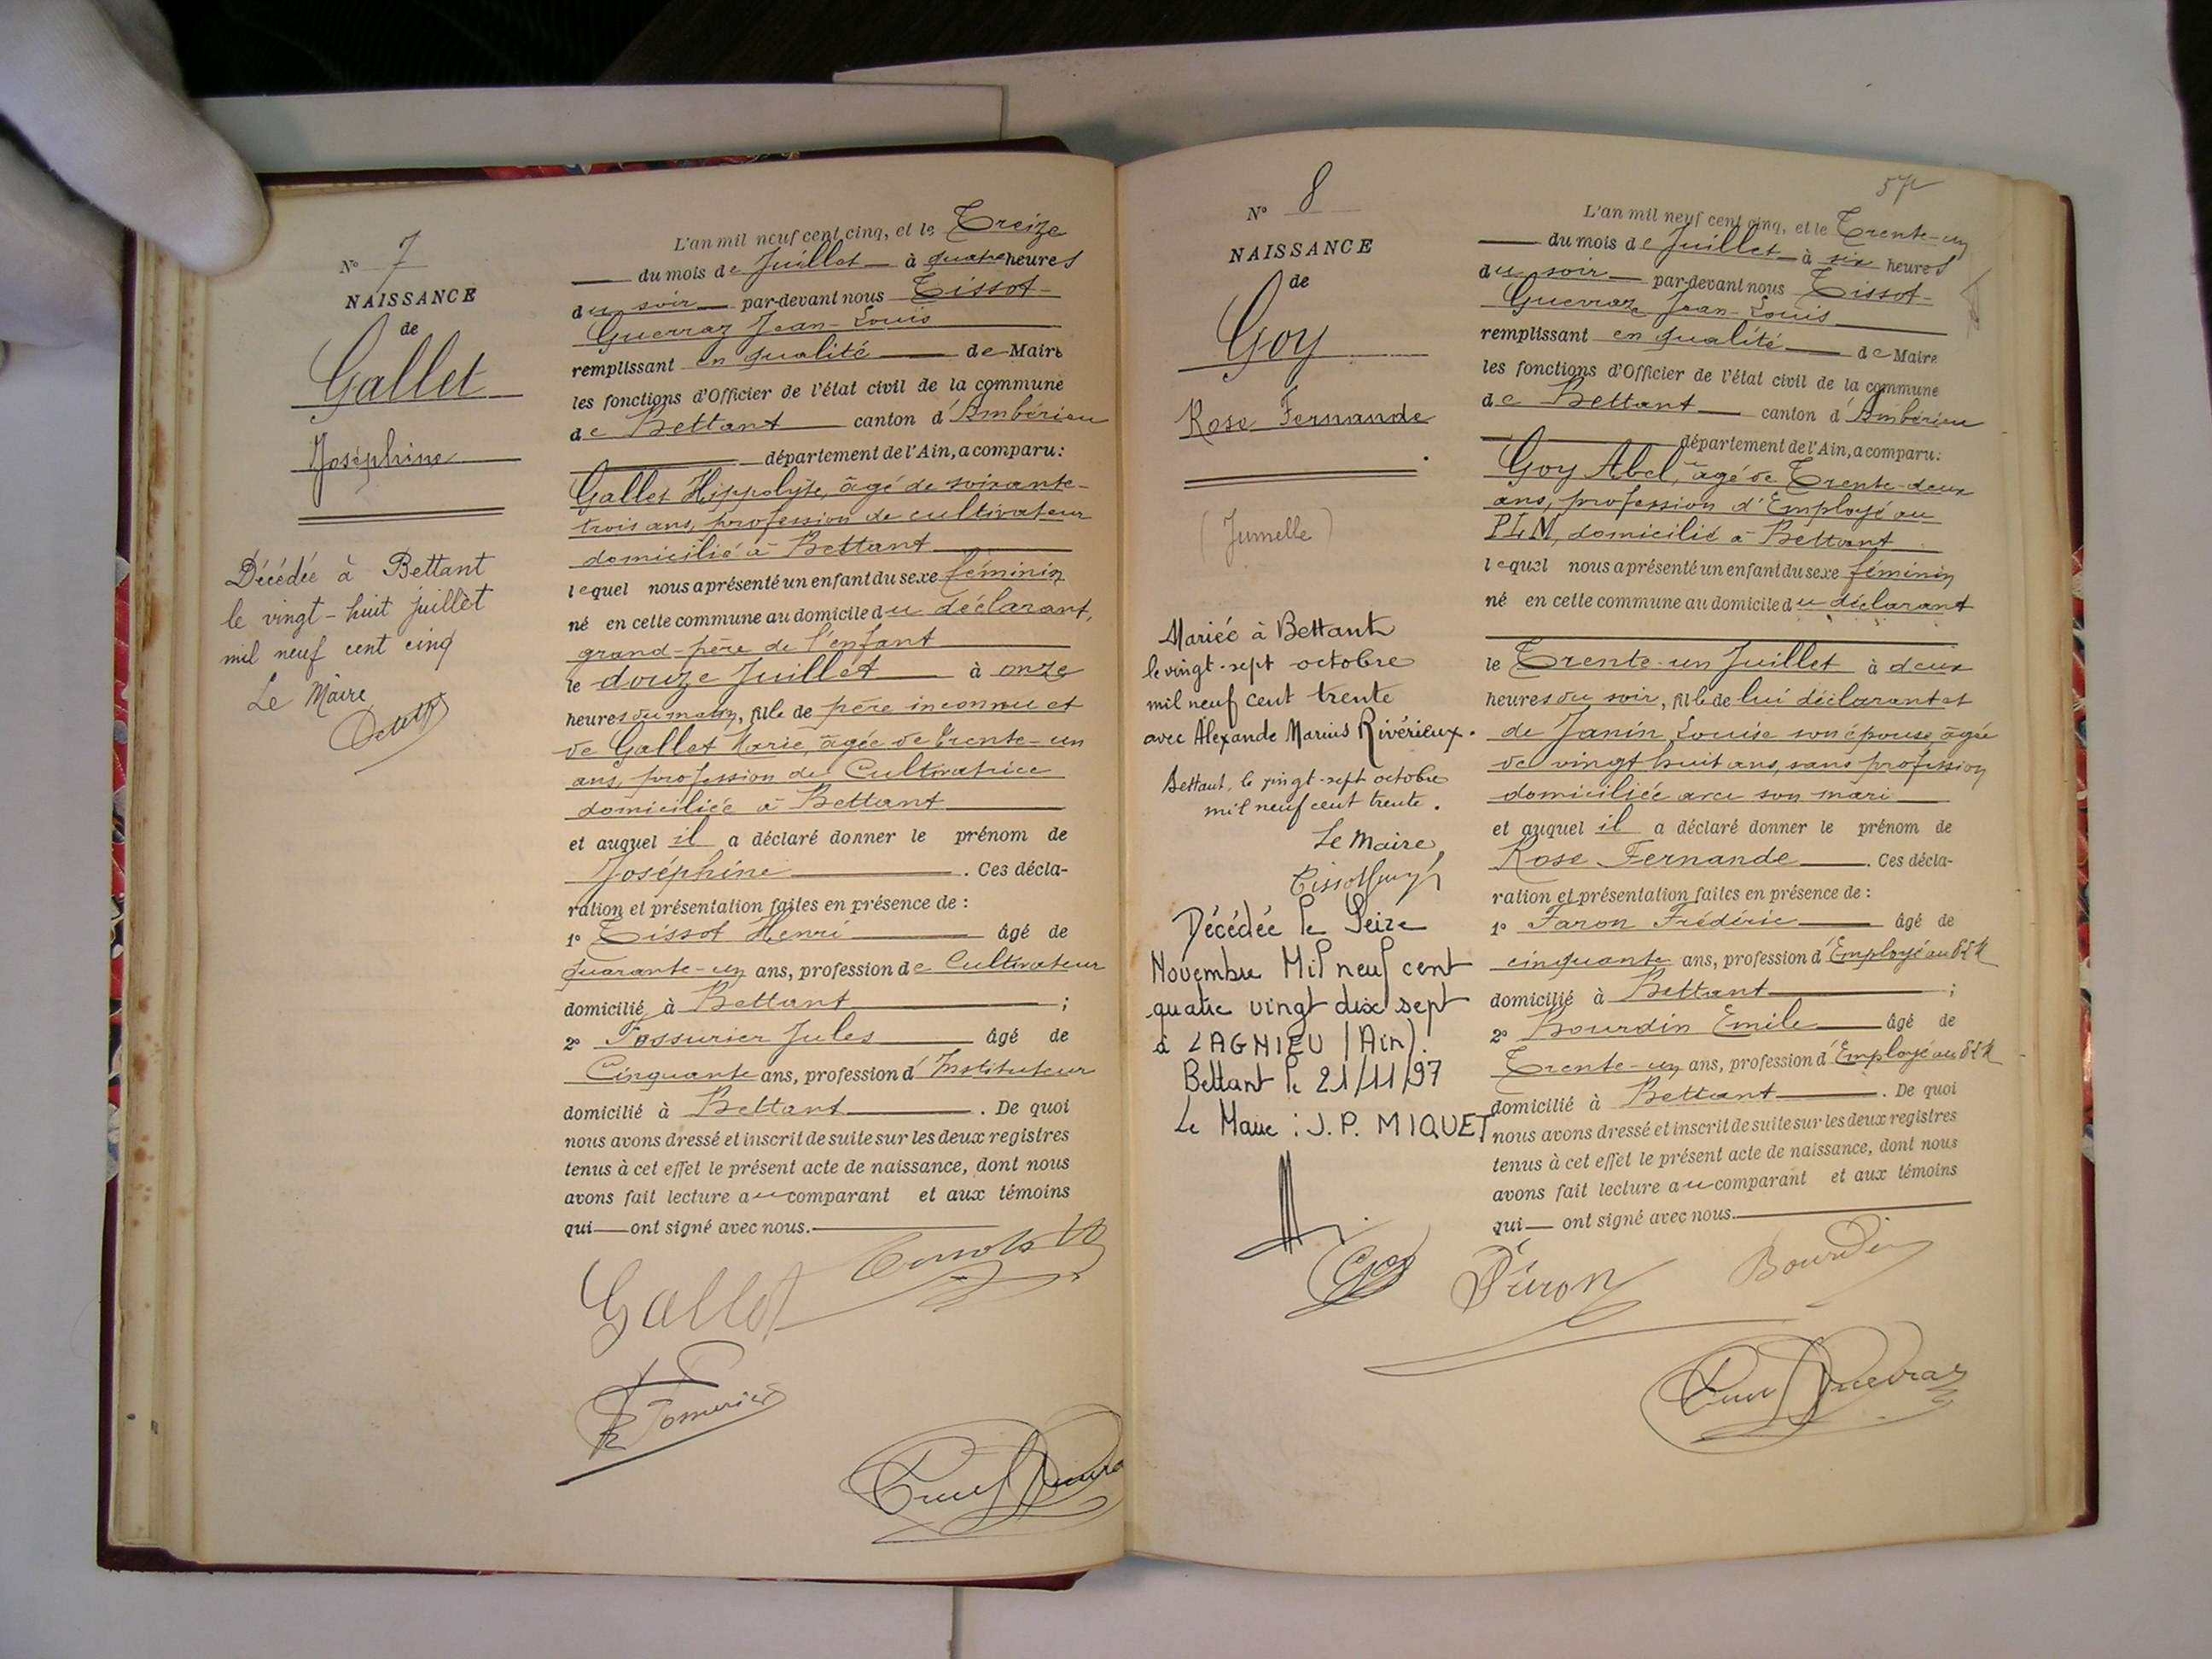 N° 7
NAISSANCE
de
Gallet
Joséphine
Décédée à Bettant
le vingt-huit juillet
mil neuf cent cinq
Le Maire
L'an mil neuf cent cinq, et le Treize
du mois de Juillet à quatre heures
du soir par-devant nous Tissot-
Guerraz Jean-Louis
remplissant en qualité de Maire
les fonctions d'Officier de l'état civil de la commune
de Bettant canton d'Ambérieu
département de l'Ain, a comparu:
Gallet Hippolyte, âgé de soixante-
trois ans, profession de cultivateur
domicilié à Bettant
lequel nous a présenté un enfant du sexe féminin
né en cette commune au domicile du déclarant,
grand-père de l'enfant
le douze Juillet à onze
heures du matin, fille de père inconnu et
de Gallet Marie, âgée de trente-un
ans, profession de Cultivatrice
domiciliée à Bettant
et auquel il a déclaré donner le prénom de
Joséphine. Ces décla-
ration et présentation faites en présence de :
1° Tissot Henri âgé de
quarante-un ans, profession de Cultivateur
domicilié à Bettant ;
2° Jules âgé de
Cinquante ans, profession d'Instituteur
domicilié à Bettant. De quoi
nous avons dressé et inscrit de suite sur les deux registres
tenus à cet effet le présent acte de naissance, dont nous
avons fait lecture au comparant et aux témoins
qui ont signé avec nous.
Gallet
N° 8
NAISSANCE
de
Goy
Rose Fernande
(Jumelle)
Mariée à Bettant
le vingt-sept octobre
mil neuf cent trente
avec Alexande Marius Rivérieux.
Bettant, le vingt-sept octobre
mil neuf cent trente.
Le Maire,
Décédée le Seize
Novembre Mil neuf cent
quatre vingt dix sept
à LAGNIEU (Ain).
Bettant le 21/11/97
Le Maire : J.P. MIQUET
57
L'an mil neuf cent cinq, et le Trente-un
du mois de Juillet à six heures
du soir par-devant nous Tissot-
Guerraz Jean-Louis
remplissant en qualité de Maire
les fonctions d'Officier de l'état civil de la commune
de Bettant canton d'Ambérieu
département de l'Ain, a comparu:
Goy Abel, âgé de Trente-deux
ans, profession d'Employé au
PLM, domicilié à Bettant
lequel nous a présenté un enfant du sexe féminin
né en cette commune au domicile du déclarant
le Trente-un Juillet à deux
heures du soir, fille de lui déclarant et
de Janin Louise son épouse âgée
de vingt huit ans, sans profession
domiciliée avec son mari
et auquel il a déclaré donner le prénom de
Rose Fernande. Ces décla-
ration et présentation faites en présence de :
1° Frédéric âgé de
cinquante ans, profession d'Employé au PLM
domicilié à Bettant ;
2° Bourdin Emile âgé de
Trente-un ans, profession d'Employé au PLM
domicilié à Bettant. De quoi
nous avons dressé et inscrit de suite sur les deux registres
tenus à cet effet le présent acte de naissance, dont nous
avons fait lecture au comparant et aux témoins
qui ont signé avec nous.
Goy Bourdin